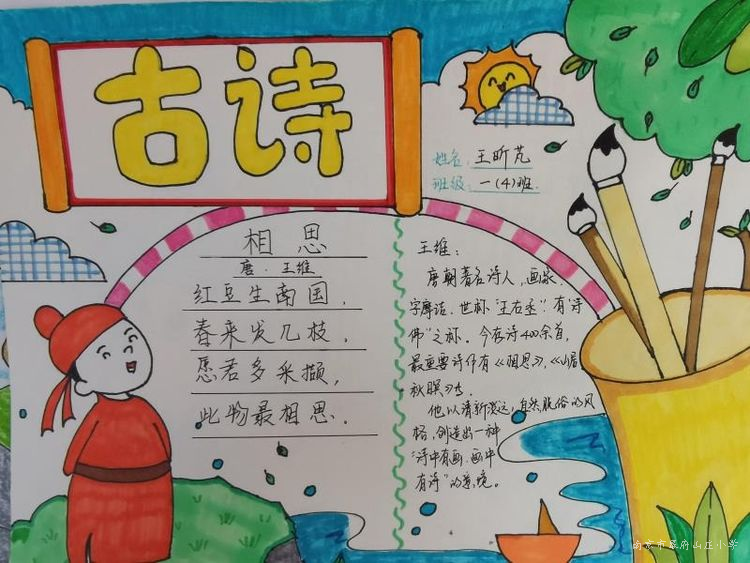 古诗
姓名:王昕芃
班级:一(4)班.
相思
唐·王维
红豆生南国,
春来发几枝,
愿君多采撷,
此物最相思.
王维:
唐朝著名诗人,画家,
字摩诘,世称“王右丞”.有“诗
佛”之称.今存诗400余首,
最重要诗作有《相思》,《山居
秋暝》等.
他以清新淡远,自然脱俗的风
格,创造出一种
“诗中有画,画中
有诗”的意境。